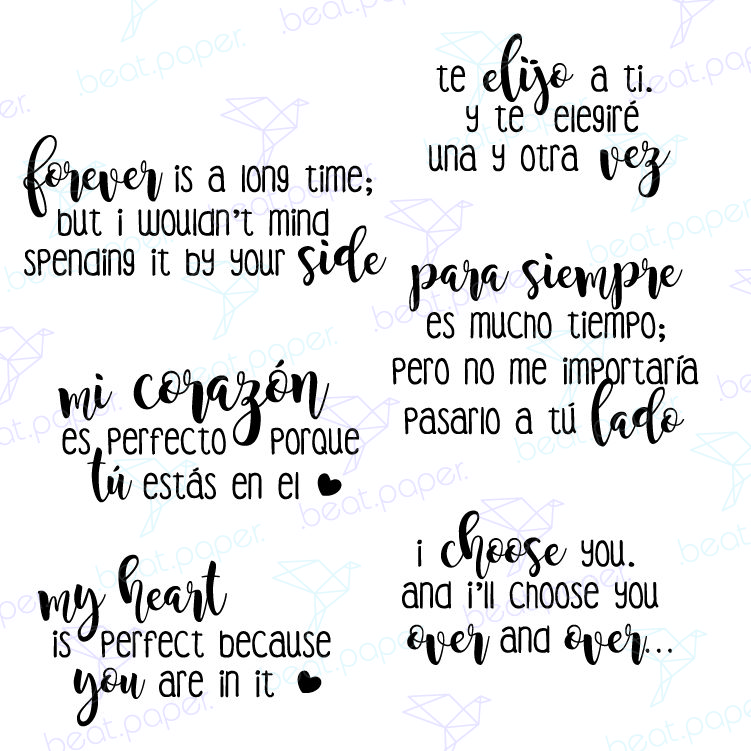 te elijo a ti.
y te elegiré
una y otra vez
forever is a long time;
but i wouldn't mind
spending it by your side
para siempre
es mucho tiempo;
pero no me importaría
pasarlo a tú lado
mi corazón
es perfecto porque
tú estás en el
i choose you.
and i'll choose you
over and over...
my heart
is perfect because
you are in it
beat.paper.